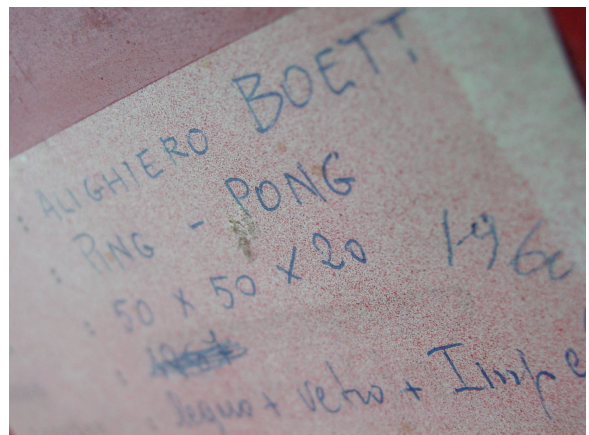 ALIGHIERO BOETTI
PING - PONG
50 x 50 x 20
legno + vetro +